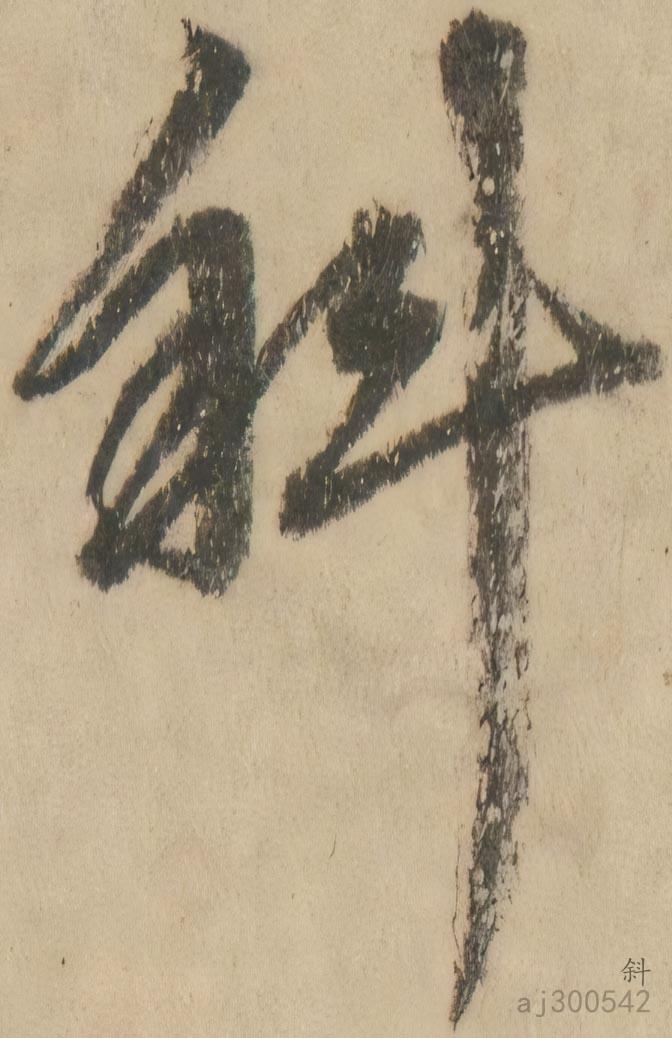 斜
斜
aj300542